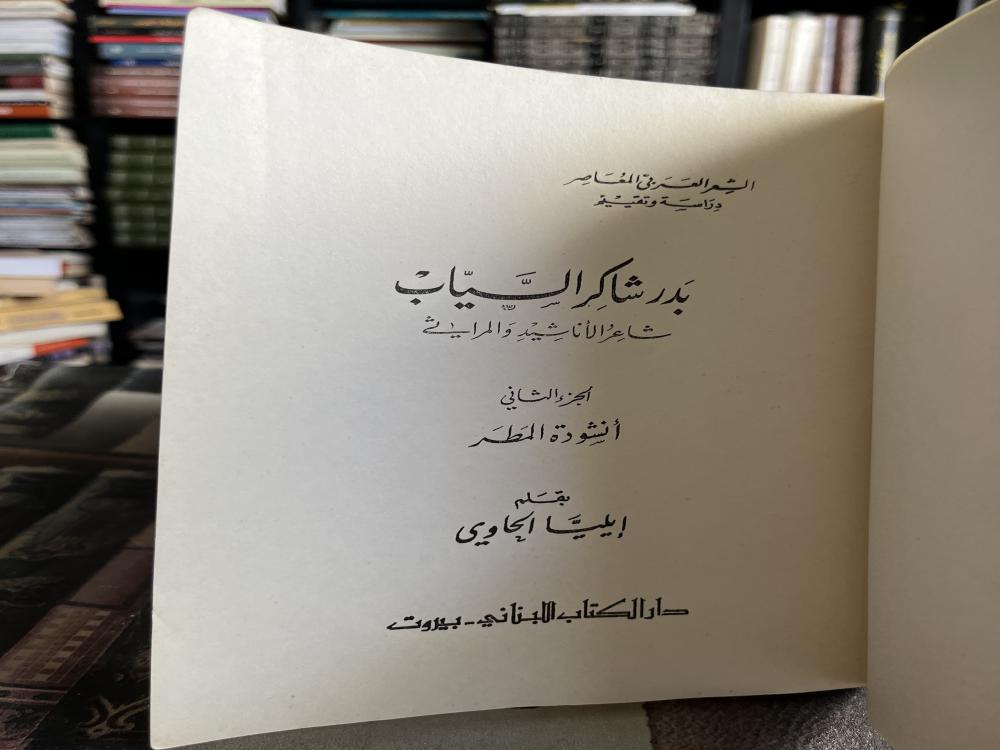 الشعر العربي المعاصر
دراسة وتقييم
بدر شاكر السياب
شاعر الأناشيد والمراثي
الجزء الثاني
أنشودة المطر
بقلم
إيليا الحاوي
دار الكتاب اللبناني - بيروت